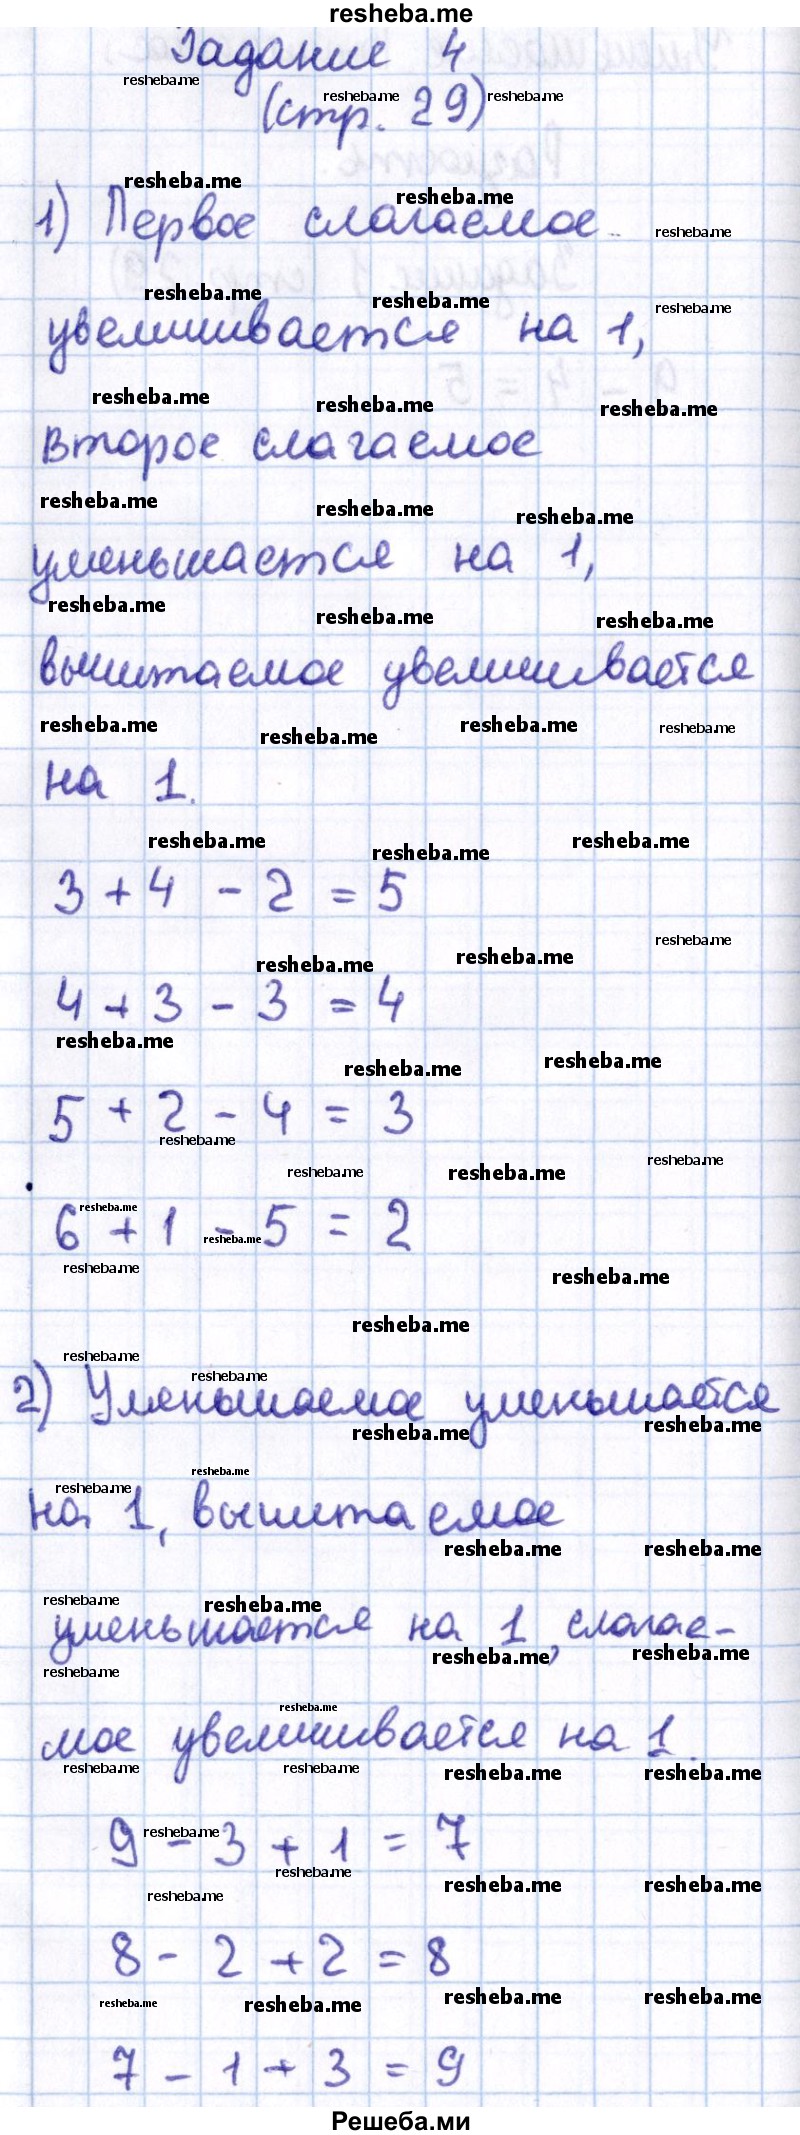 resheba.me
Задание 4
(стр. 29)
1) Первое слагаемое
увеличивается на 1,
второе слагаемое
уменьшается на 1,
вычитаемое увеличивается
на 1.
3 + 4 - 2 = 5
4 + 3 - 3 = 4
5 + 2 - 4 = 3
6 + 1 - 5 = 2
2) Уменьшаемое уменьшается
на 1, вычитаемое
уменьшается на 1, слагае-
мое увеличивается на 1.
9 - 3 + 1 = 7
8 - 2 + 2 = 8
7 - 1 + 3 = 9
Решеба.ми